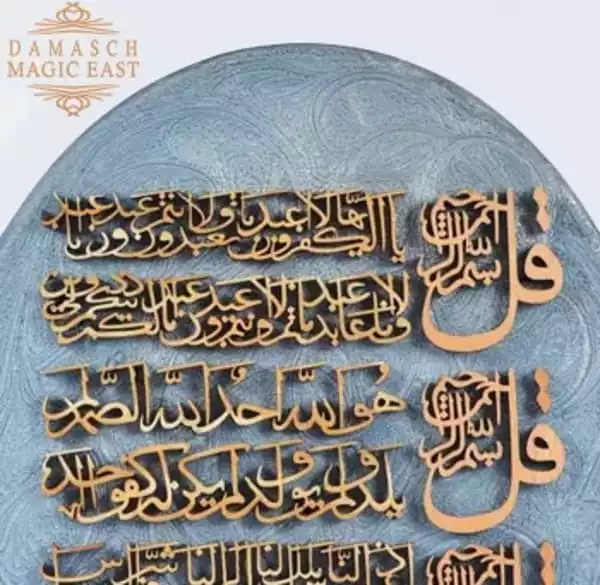 DAMASCH
MAGIC EAST
قل
بسم الله الرحمن الرحيم
يا ايها الكفرون لا اعبد ما تعبدون ولا انتم عبدون ما اعبد
ولا انا عابد ما عبدتم ولا انتم عبدون ما اعبد لكم دينكم ولي دين
قل
بسم الله الرحمن الرحيم
هو الله احد الله الصمد لم
يلد ولم يولد ولم يكن له كفوا احد
الناس ملك الناس اله الناس شر